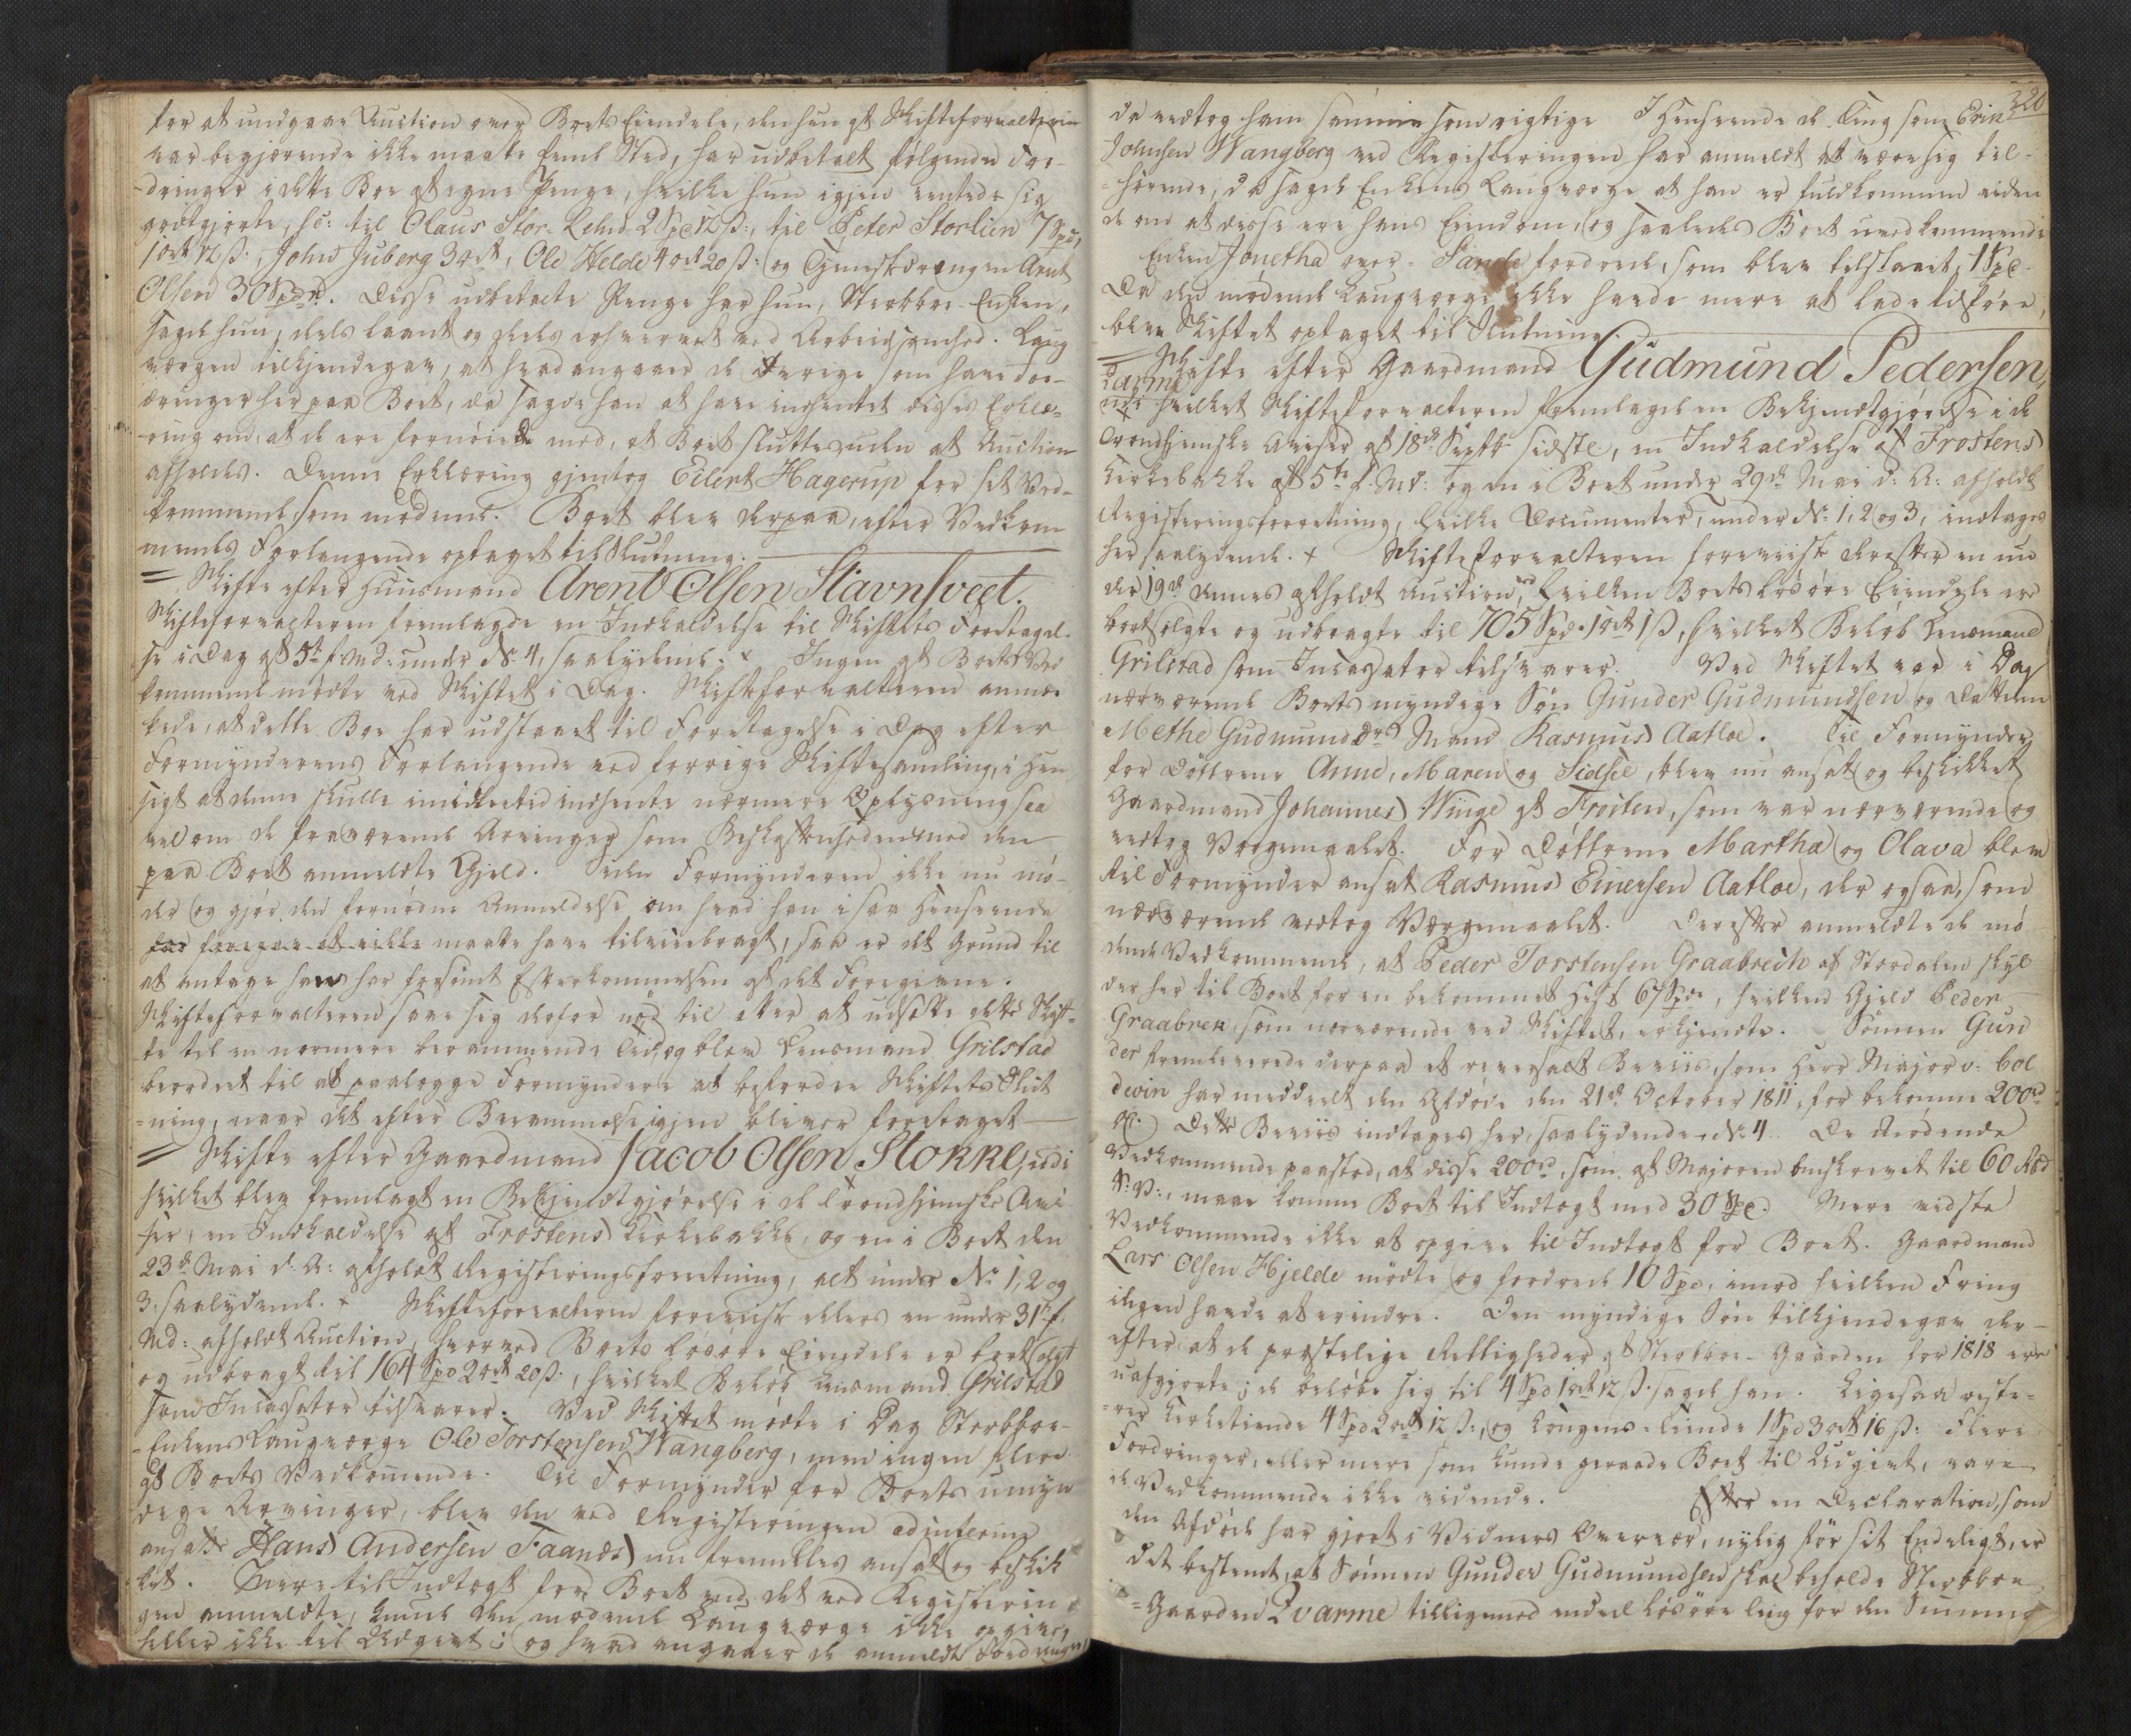 for at undgaae Auction over Boets Eiendele, den hun af Skifteforvalteren
var begjærende ikke maatte finde Sted, har udbetalt følgende For-
dringer i dette Boe af egne Penge, hvilke hun igjen ventede sig
godtgjorte, sc: til Olaus Stor-Lehn 2 Spd 12 ß:, til Peter Storlien 7 Spd,
1 ort 12 ß:, John Juberg 3 ort, Ole Helde 4 ort 20 ß: og Tjenestdrengen Arnt
Olsen 30 Spdr. Disse udbetalte Penge har hun, Sterbboe-Enken,
sagde hun, dels laant og dels erhvervet ved Arbeidsomhed. Laug
værgen tilkjendegav, at hvad angaaer de Øvrige som have For-
dringer her paa Boet, da sagde han at have indhentet disses Erklæ-
ring om, at de ere fornøiede med, at Boet sluttes uden at Auction
afholdes. Denne Erklæring gjentog Eilert Hagerup for sit Ved-
kommende, som mødende. Boet blev derpaa, efter Vedkom
mendes Forlangende optaget til Slutning.
= Skifte efter Huusmand Arent Olsen Stavnsveet.
Skifteforvalteren fremlagde en Indkaldelse til Skiftets Foretagel-
se i Dag af 5te f. Md: under No 4, saalydende. × Ingen af Boets Ved
kommende mødte ved Skiftet i Dag. Skifteforvalteren anmær
kede, at dette Boe har udstaaet til Foretagelse i Dag efter
Formynderens Forlangende ved forrige Skiftesamling, i Hen
sigt at denne skulle imidlertid indhente nærmere Oplysning saa
vel om de fraværende Arvinger som Beskaffenheden med den
paa Boet anmeldte Gjeld. Siden Formynderen ikke nu mø-
der og gjør den fornødne Anmeldelse om hvad han i saa Henseende
maatte have tilveiebragt, saa er det Grund til
at antage han har forsømt Efterkommelsen af det Foregivne.
Skifteforvalteren saae sig derfor nød til atter at udsætte dette Skif-
te til en nærmere berammende Tid, og blev Lensmand Grilstad
beordret til at paalægge Formyndere at befordre Skiftets Slut
-ning, naar det efter Berammelse igjen bliver foretaget
= Skifte efter Gaardmand Jacob Olsen Stokke, udi
hvilket blev fremlagt en Bekjendtgjørelse i de Trondhjemske Avi
ser, en Indkaldelse af Frostens Kirkebakke, og en i Boet den
23de Mai d. A: afholdt Registeringsforretning, alt under No 1, 2 og
3, saalydende. × Skifteforvalteren foreviiste ellers en under 31te f.
Md: afholdt Auction, hvorved Boets Løsøre Eiendele er bortsolgt
og udbragt til 164 Spd 2 ort 20 ß:, hvilket Beløb Lensmand Grilstad
som Incassator tilsvarer. Ved Skiftet mødte i Dag Sterbboe-
-Enkens Laugværge Ole Torstensen Wangberg, men ingen flere
af Boets Vedkommende. Til Formynder for Boets umyn
dige Arvinger, blev den ved Registeringen ad interim
ansatte Hans Andersen Faanes nu fremdeles ansat og beskik
ket. Mere til Indtægt for Boet end det ved Registerin
gen anmeldte, kunde den mødende Laugværge ikke opgive,
heller ikke til Udgivt; og hvad angaaer de anmeldte Fordringer,
320
da vedtog ham samme som rigtige I Henseende de Ting som Erik
Johnsen Wangberg ved Registeringen har anmeldt at være sig til-
=hørende, da sagde Enkens Laugværge at han er fuldkommen viden
de om at disse ere hans Eiendom, og saaledes Boet uvedkommende
Enken Jonetha over-Sande fordrede, som blev tilstaaet, 1 Spd.
Da den mødende Laugværge ikke havde mere at lade tilføre,
blev Skiftet optaget til Slutning.
= Skifte efter Gaardmand Gudmund Pedersen,
Qvarme
udi hvilket Skifteforvalteren fremlagde en Bekjendtgjørelse i de
Trondhjemske Aviser af 18de Septbr sidste, en Indkaldelse af Frostens
Kirkebakke af 5te f. Md: og en i Boet under 29de Mai d: A: afholdt
Registeringsforretning, hvilke Documenter, under No 1, 2 og 3, indtages
her saalydende. × Skifteforvalteren foreviiste derefter en un
der 19de dennes afholdt Auction, ved hvilken Boets Løsøre Eiendele er
bortsolgte og udbragte til 705 Spd. 1 ort 1 ß, hvilket Beløb Lensmand
Grilstad som Incassator tilsvarer. Ved Skiftet var i Dag
nærværende Boets myndige Søn Gunder Gudmundsen og Datteren
Methe Gudmundsdr Mand Rasmus Aatloe. Til Formynder
for Døttrene Anne, Maren og Sidsel, blev nu ansat og beskikket
Gaardmand Johannes Winge af Frosten, som var nærværende og
vedtog Værgemaalet. For Døttrene Martha og Olava blev
til Formynder ansat Rasmus Einersen Aatloe, der ogsaa, som
nærværende vedtog Værgemaalet. Derefter anmeldte de mø
dende Vedkommende, at Peder Torstensen Graabreck af Størdalen skyl
der her til Boet for en bekommet Hest 67 Spdr, hvilken Gjeld Peder
Graabrek, som nærværende ved Skiftet, erkjendte. Sønnen Gun
der fremleverede derpaa et Beviis, som Herr Major v: Col
dewin har meddeelt den Afdøde den 21de October 1811, for bekomne 200rd
Dette Beviis indtages her, saalydende, No 4. De Mødende
Vedkommende paastod, at disse 200rd, som af Majoren omskrevet til 60 Rbd
S: V:, maae komme Boet til Indtægt med 30 Spd. Mere vidste
Vedkommende ikke at opgive til Indtægt for Boet. Gaardmand
Lars Olsen Hjelde mødte og fordrede 10 Spd, imod hvilken Fring
ingen havde at erindre. Den myndige Søn tilkjendegav der-
efter, at de præstelige Rettigheder af Sterbboe-Gaarden for 1818 ere
uafgjorte; de beløbe sig til 4 Spd 1 ort 12 ß. sagde han. Ligesaa reste-
=rer Kirketiende 4 Spd 2 ort 12 ß:, og Kongens-Tiende 1 Spd 3 ort 16 ß: Flere
Fordringer, eller mere som kunde geraade Boet til Udgivt, vare
de Vedkommende ikke vidende. Efter en Declaration, som
den Afdøde har gjort i Vidners Overvær, nylig før sit Endeligt, er
det bestemt, at Sønnen Gunder Gudmundsen skal beholde Sterbboe
=Gaarden Qvarme tilligemed endeel Løsøre ting for den Summa